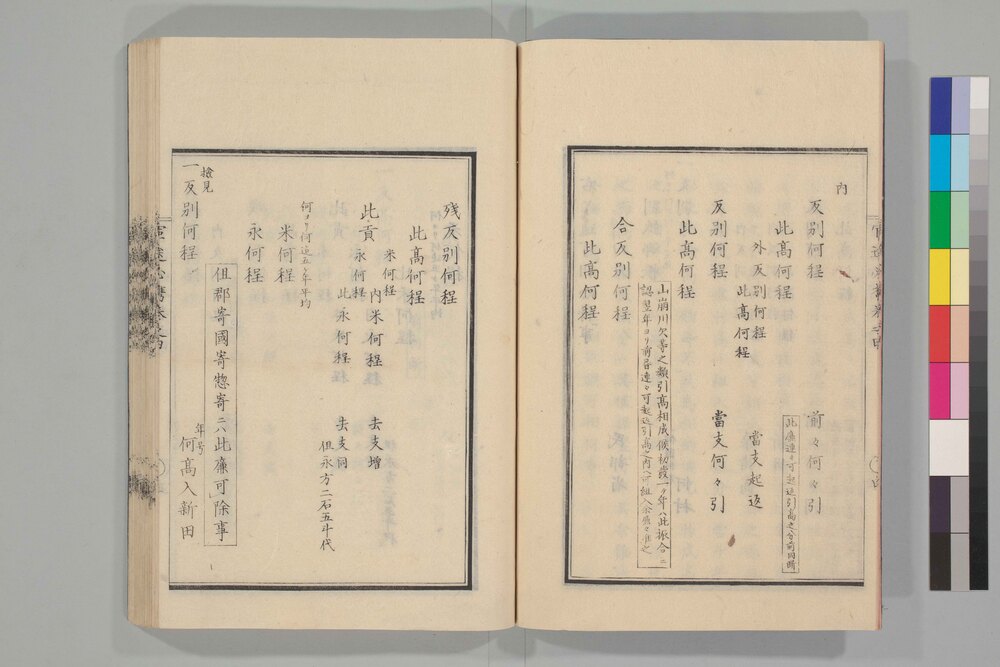 内
反別何程　前々何々引
此廉連々可起返引高之分前同断
此高何程
外反別何程　當支起返
此高何程
反別何程　當支何々引
此高何程
山崩川欠等之類引高相成候初發一ヶ年ハ此振合ニ
認翌年ヨリ前
合反別何程
此高何程
残反別何程
此高何程
米何程　内米何程　去支増
此貢
永何程　此永何程　去支同
但永方二石五斗代
何ヨリ何迄五ヶ年平均
米何程
永何程
但郡寄國寄惣寄ニハ此廉可除事
檢見
一反別何程　年号何高入新田